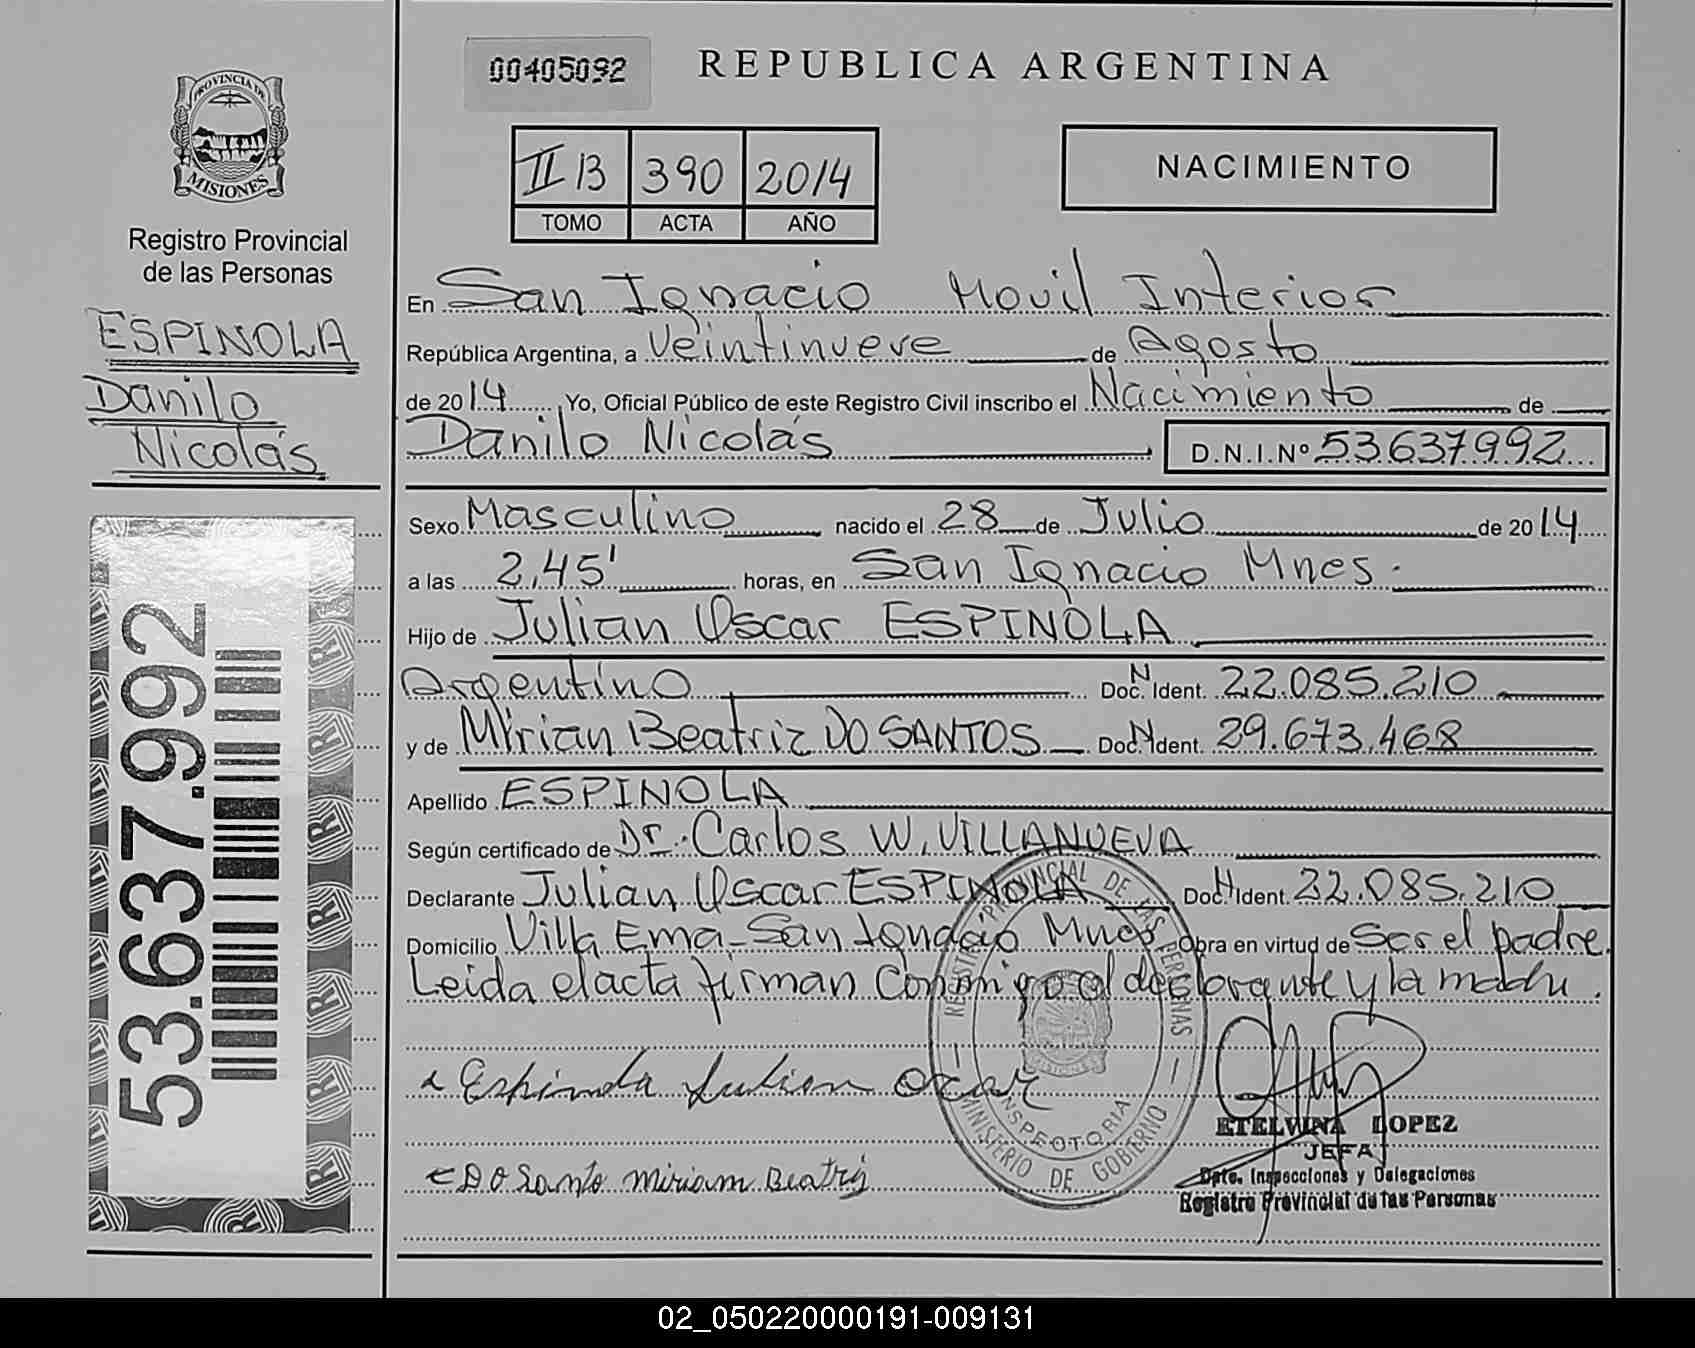 00405092
REPUBLICA ARGENTINA
PROVINCIA DE
MISIONES
Registro Provincial
de las Personas
ESPINOLA
Danilo
Nicolás
53.637.992
II B 390 2014
TOMO ACTA AÑO
NACIMIENTO
En San Ignacio Movil Interior
República Argentina, a Veintinueve de Agosto
de 2014 Yo, Oficial Público de este Registro Civil inscribo el Nacimiento de
Danilo Nicolás D.N.I.Nº 53637992
Sexo Masculino nacido el 28 de Julio de 2014
a las 2,45' horas, en San Ignacio Mnes.
Hijo de Julian Oscar ESPINOLA
Argentino Doc. N Ident. 22.085.210
y de Mirian Beatriz DO SANTOS Doc. N Ident. 29.673.468
Apellido ESPINOLA
Según certificado de Dr. Carlos W. VILLANUEVA
Declarante Julian Oscar ESPINOLA Doc. N Ident. 22.085.210
Domicilio Villa Ema - San Ignacio Mnes Obra en virtud de Ser el padre.
Leida el acta firman Conmigo el declarante y la madre.
Espinola Julian Oscar
Do Santo Miriam Beatriz
REGISTRO PROVINCIAL DE LAS PERSONAS
MISIONES
INSPECTORIA
MINISTERIO DE GOBIERNO
ETELVINA LOPEZ
JEFA
Dpto. Inspecciones y Delegaciones
Registro Provincial de las Personas
02_050220000191-009131